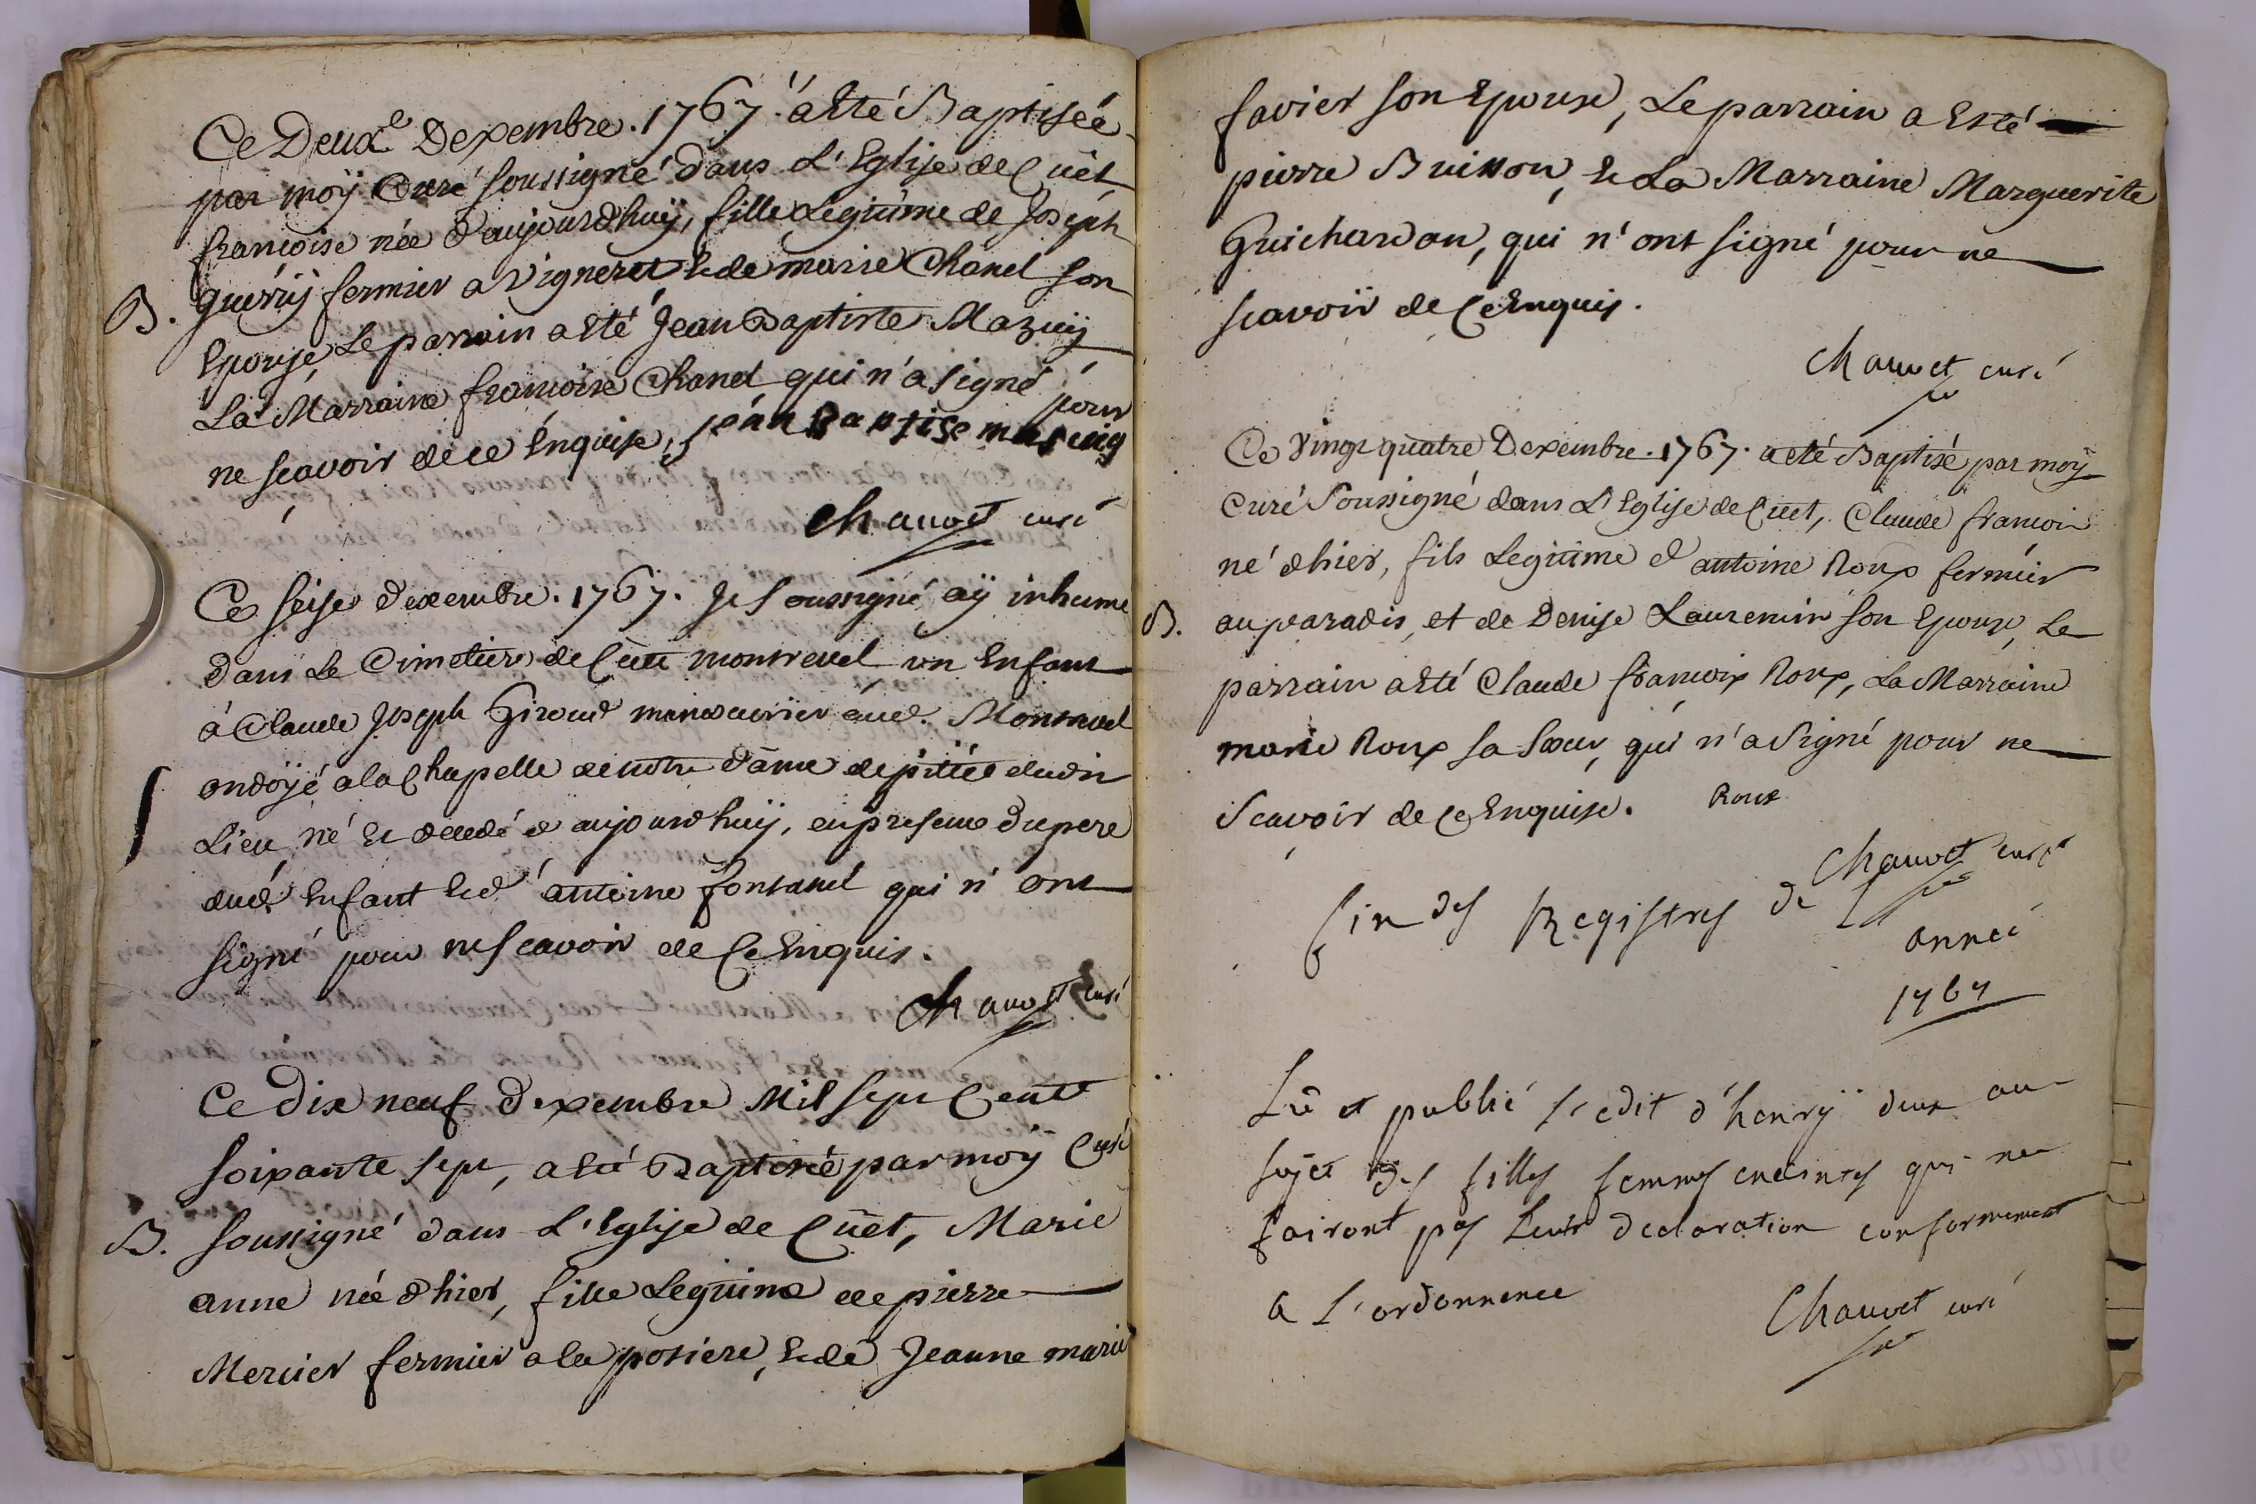 Ce Deuxe Dexembre. 1767. a Eté Baptisée
par moÿ Curé soussigné dans L'Eglise de Cüet
francoise née d'aujourdhuÿ, fille Legitime de Joseph
B. guérrÿ fermier a Vigneret, Et de marie Chanel son
Epouse, Le parrain a Eté Jean Baptiste Mazuÿ
La Marraine francoise Chanel qui n'a signé pour
ne scavoir de ce Enquise, jean Baptise
Chauvet curé
Ce seise dexembre. 1767. Je soussigné aÿ inhumé
dans Le Cimetiere de Cüet montrevel un Enfant
à Claude Joseph Giroud aud. Montrevel
ondoÿé a la Chapelle de notre dame de pitiée dudit
Lieu né Et decedé d'aujourdhuÿ, en presence du pere
dud. Enfant Et d'antoine fontanel qui n'ont
signé pour ne scavoir de Ce Enquis.
Chauvet curé
Ce dix neuf dexembre Mil sept Cent
soixante sept, a Eté Baptisée par moÿ Curé
B. soussigné dans L'Eglise de Cüet, Marie
anne née d'hier, fille Legitime de pierre
Mercier fermier a la posiere, Et de Jeanne marie
favier son Epouse, Le parrain a Esté
pierre Buisson, Et La Marraine Marguerite
Guichardon, qui n'ont signé pour ne
scavoir de Ce Enquis.
Chauvet curé
Ce vingt quatre Dexembre. 1767. a eté Baptisé par moÿ
curé Soussigné dans L'Eglise de Cüet, Claude francois
né d'hier, fils Legitime d'antoine Roux fermier
B. au paradis, et de Denise Laurencin son Epouse, Le
parrain a Eté Claude francoix Roux, La Marraine
marie Roux sa Sœur, qui n'a signé pour ne
scavoir de Ce Enquise. Roux
Chauvet curé
fin des Registres de L
année
1767
Lû et publié l'edit d'henrÿ deux au
sujet des filles femmes enceintes qui ne
fairont pas leur declaration conformement
a l'ordonnence
Chauvet curé